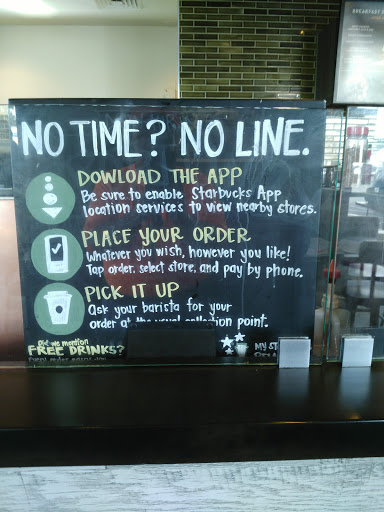 BREAKFAST
NO TIME? NO LINE.
DOWLOAD THE APP
Be sure to enable Starbucks App
location services to view nearby stores.
PLACE YOUR ORDER
Whatever you wish, however you like!
Tap order, select store, and pay by phone.
PICK IT UP
Ask your barista for your
order at the usual collection point.
Did we mention
FREE DRINKS?
MY ST